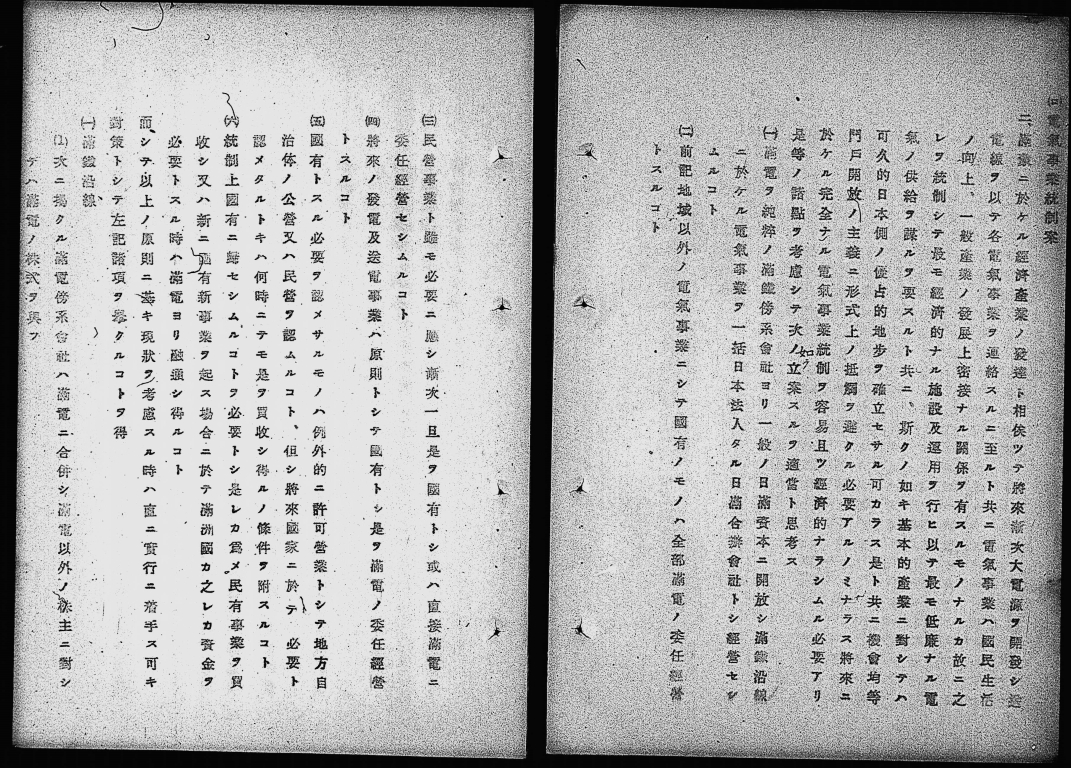 (二)電氣事業統制案
二、滿蒙ニ於ケル經濟產業ノ發達ト相俟ツテ將來漸次大電源ヲ開發シ送
電線ヲ以テ各電氣事業ヲ連絡スルニ至ルト共ニ電氣事業ハ國民生活
ノ向上、一般產業ノ發展上密接ナル關係ヲ有スルモノナルカ故ニ之
レヲ統制シテ最モ經濟的ナル施設及運用ヲ行ヒ以テ最モ低廉ナル電
氣ノ供給ヲ謀ルヲ要スルト共ニ、斯クノ如キ基本的產業ニ對シテハ
可久的日本側ノ優占的地步ヲ確立セサル可カラス是ト共ニ機會均等
門戶開放ノ主義ニ形式上ノ抵觸ヲ避クル必要アルノミナラス將來ニ
於ケル完全ナル電氣事業統制ヲ容易且ツ經濟的ナラシムル必要アリ
是等ノ諸點ヲ考慮シテ次ノ如ク立案スルヲ適當ト思考ス
(一)滿電ヲ純粹ノ滿鐵傍系會社ヨリ一般ノ日滿資本ニ開放シ滿鐵沿線
ニ於ケル電氣事業ヲ一括日本法人タル日滿合辦會社トシ經營セシ
ムルコト
(二)前記地域以外ノ電氣事業ニシテ國有ノモノハ全部滿電ノ委任經營
トスルコト
(三)民營事業ト雖モ必要ニ應シ漸次一旦是ヲ國有トシ或ハ直接滿電ニ
委任經營セシムルコト
(四)將來ノ發電及送電事業ハ原則トシテ國有トシ是ヲ滿電ノ委任經營
トスルコト
(五)國有トスル必要ヲ認メサルモノハ例外的ニ許可營業トシテ地方自
治体ノ公營又ハ民營ヲ認ムルコト、但シ將來國家ニ於テ必要ト
認メタルトキハ何時ニテモ是ヲ買收シ得ルノ條件ヲ附スルコト
(六)統制上國有ニ歸セシムルコトヲ必要トシ是レカ爲メ民有事業ヲ買
收シ又ハ新ニ國有新事業ヲ起ス場合ニ於テ滿洲國カ之レカ資金ヲ
必要トスル時ハ滿電ヨリ融通シ得ルコト
而シテ以上ノ原則ニ基キ現狀ヲ考慮スル時ハ直ニ實行ニ着手ス可キ
對策トシテ左記諸項ヲ擧クルコトヲ得
(一)滿鐵沿線
(1)次ニ揭クル滿電傍系會社ハ滿電ニ合併シ滿電以外ノ株主ニ對シ
テハ滿電ノ株式ヲ與フ